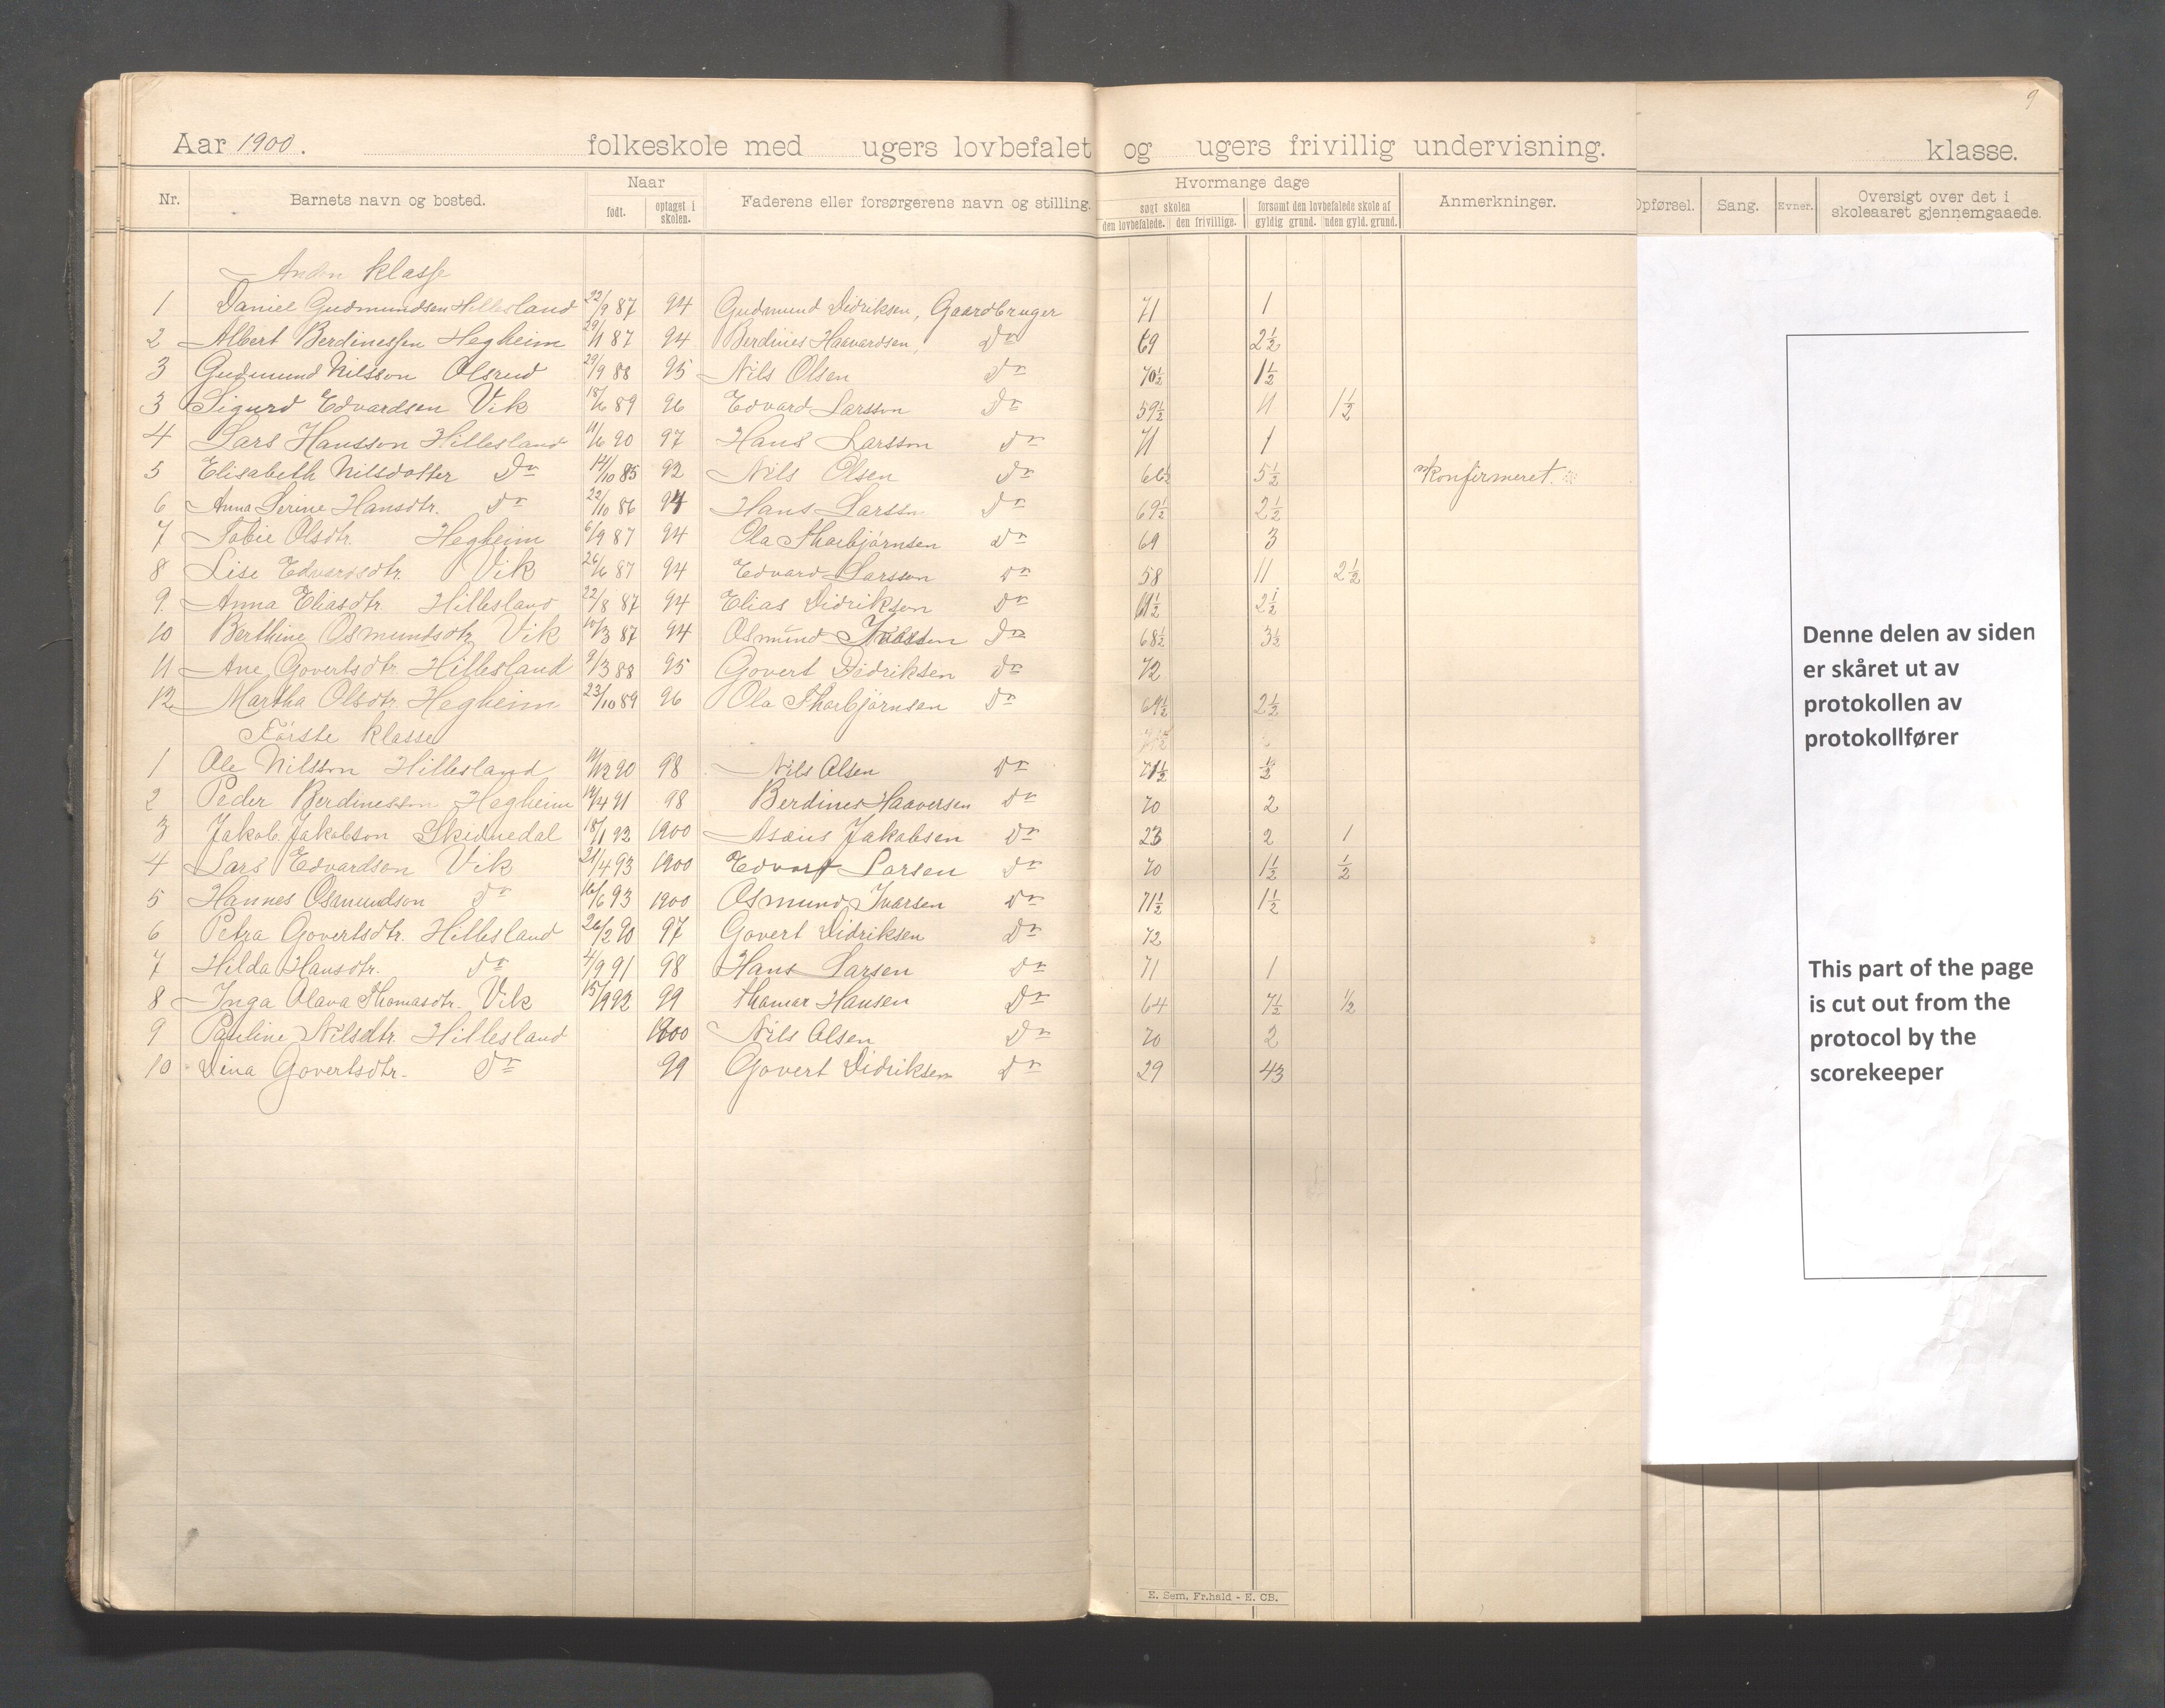 9
Aar 1900. folkeskole med ugers lovbefalet og ugers frivillig undervisning. klasse.
Nr. Barnets navn og bosted. Naar født. optaget i skolen. Faderens eller forsørgerens navn og stilling. Hvormange dage søgt skolen den lovbefalede. den frivillige. forsømt den lovbefalede skole af gyldig grund. uden gyld. grund. Anmerkninger. Opførsel. Sang. Evner. Oversigt over det i skoleaaret gjennemgaaede.
Anden klasse
1 Daniel Gudmundsen Hillesland 22/9 87 94 Gudmund Didriksen, Gaardbruger 71 1
2 Albert Berdinessen Hegheim 29/1 87 94 Berdines Haavardsen, Do 69 2½
3 Gudmund Nilsson Olsrud 29/9 88 95 Nils Olsen Do 70½ 1½
3 Sigurd Edvardsen Vik 18/6 89 96 Edvard Larsson Do 59½ 11 1½
4 Lars Hansson Hillesland 11/6 90 97 Hans Larsson Do 71 1
5 Elisabeth Nilsdotter Do 14/10 85 92 Nils Olsen Do 66½ 5½ Konfirmeret.
6 Anna Serine Hansdtr. Do 22/10 86 94 Hans Larsson Do 69½ 2½
7 Tobie Olsdtr. Hegheim 6/9 87 94 Ola Thorbjørnsen Do 69 3
8 Lise Edvardsdtr. Vik 26/6 87 94 Edvard Larsson Do 58 11 2½
9. Anna Eliasdtr. Hillesland 22/8 87 94 Elias Didriksen Do 69½ 2½
10 Berthine Osmundsdtr. Vik 10/3 87 94 Osmund Do 68½ 3½
11 Ane Govertsdtr. Hillesland 9/3 88 95 Govert Didriksen Do 72
12 Martha Olsdtr. Hegheim 23/10 89 96 Ola Thorbjørnsen Do 69½ 2½
Første klasse
1 Ole Nilsson Hillesland /12 90 98 Nils Olsen Do 71½ ½
2 Peder Berdinesson Hegheim 14/4 91 98 Berdines Haaversen Do 70 2
3 Jakob Jakobson Skidnedal 18/1 92 1900 Asæus Jakobsen Do 23 2 1
4 Lars Edvardson Vik 21/4 93 1900 Edvart Larsen Do 70 1½ ½
5 Hannes Osmundson Do 16/6 93 1900 Osmund Ivarsen Do 71½ 1½
6 Petra Govertsdtr. Hillesland 26/2 90 97 Govert Didriksen Do 72
7 Hilda Hansdtr. Do 4/9 91 98 Hans Larsen Do 71 1
8 Inga Olava Thomasdtr. Vik 15/9 92 99 Hansen Do 64 7½ ½
9 Pauline Nilsdtr. Hillesland 1900 Nils Olsen Do 70 2
10 Dina Govertsdtr. Do 99 Govert Didriksen Do 29 43
Denne delen av siden
er skåret ut av
protokollen av
protokollfører
This part of the page
is cut out from the
protocol by the
scorekeeper
E. Sem, Fr.hald - E. CB.